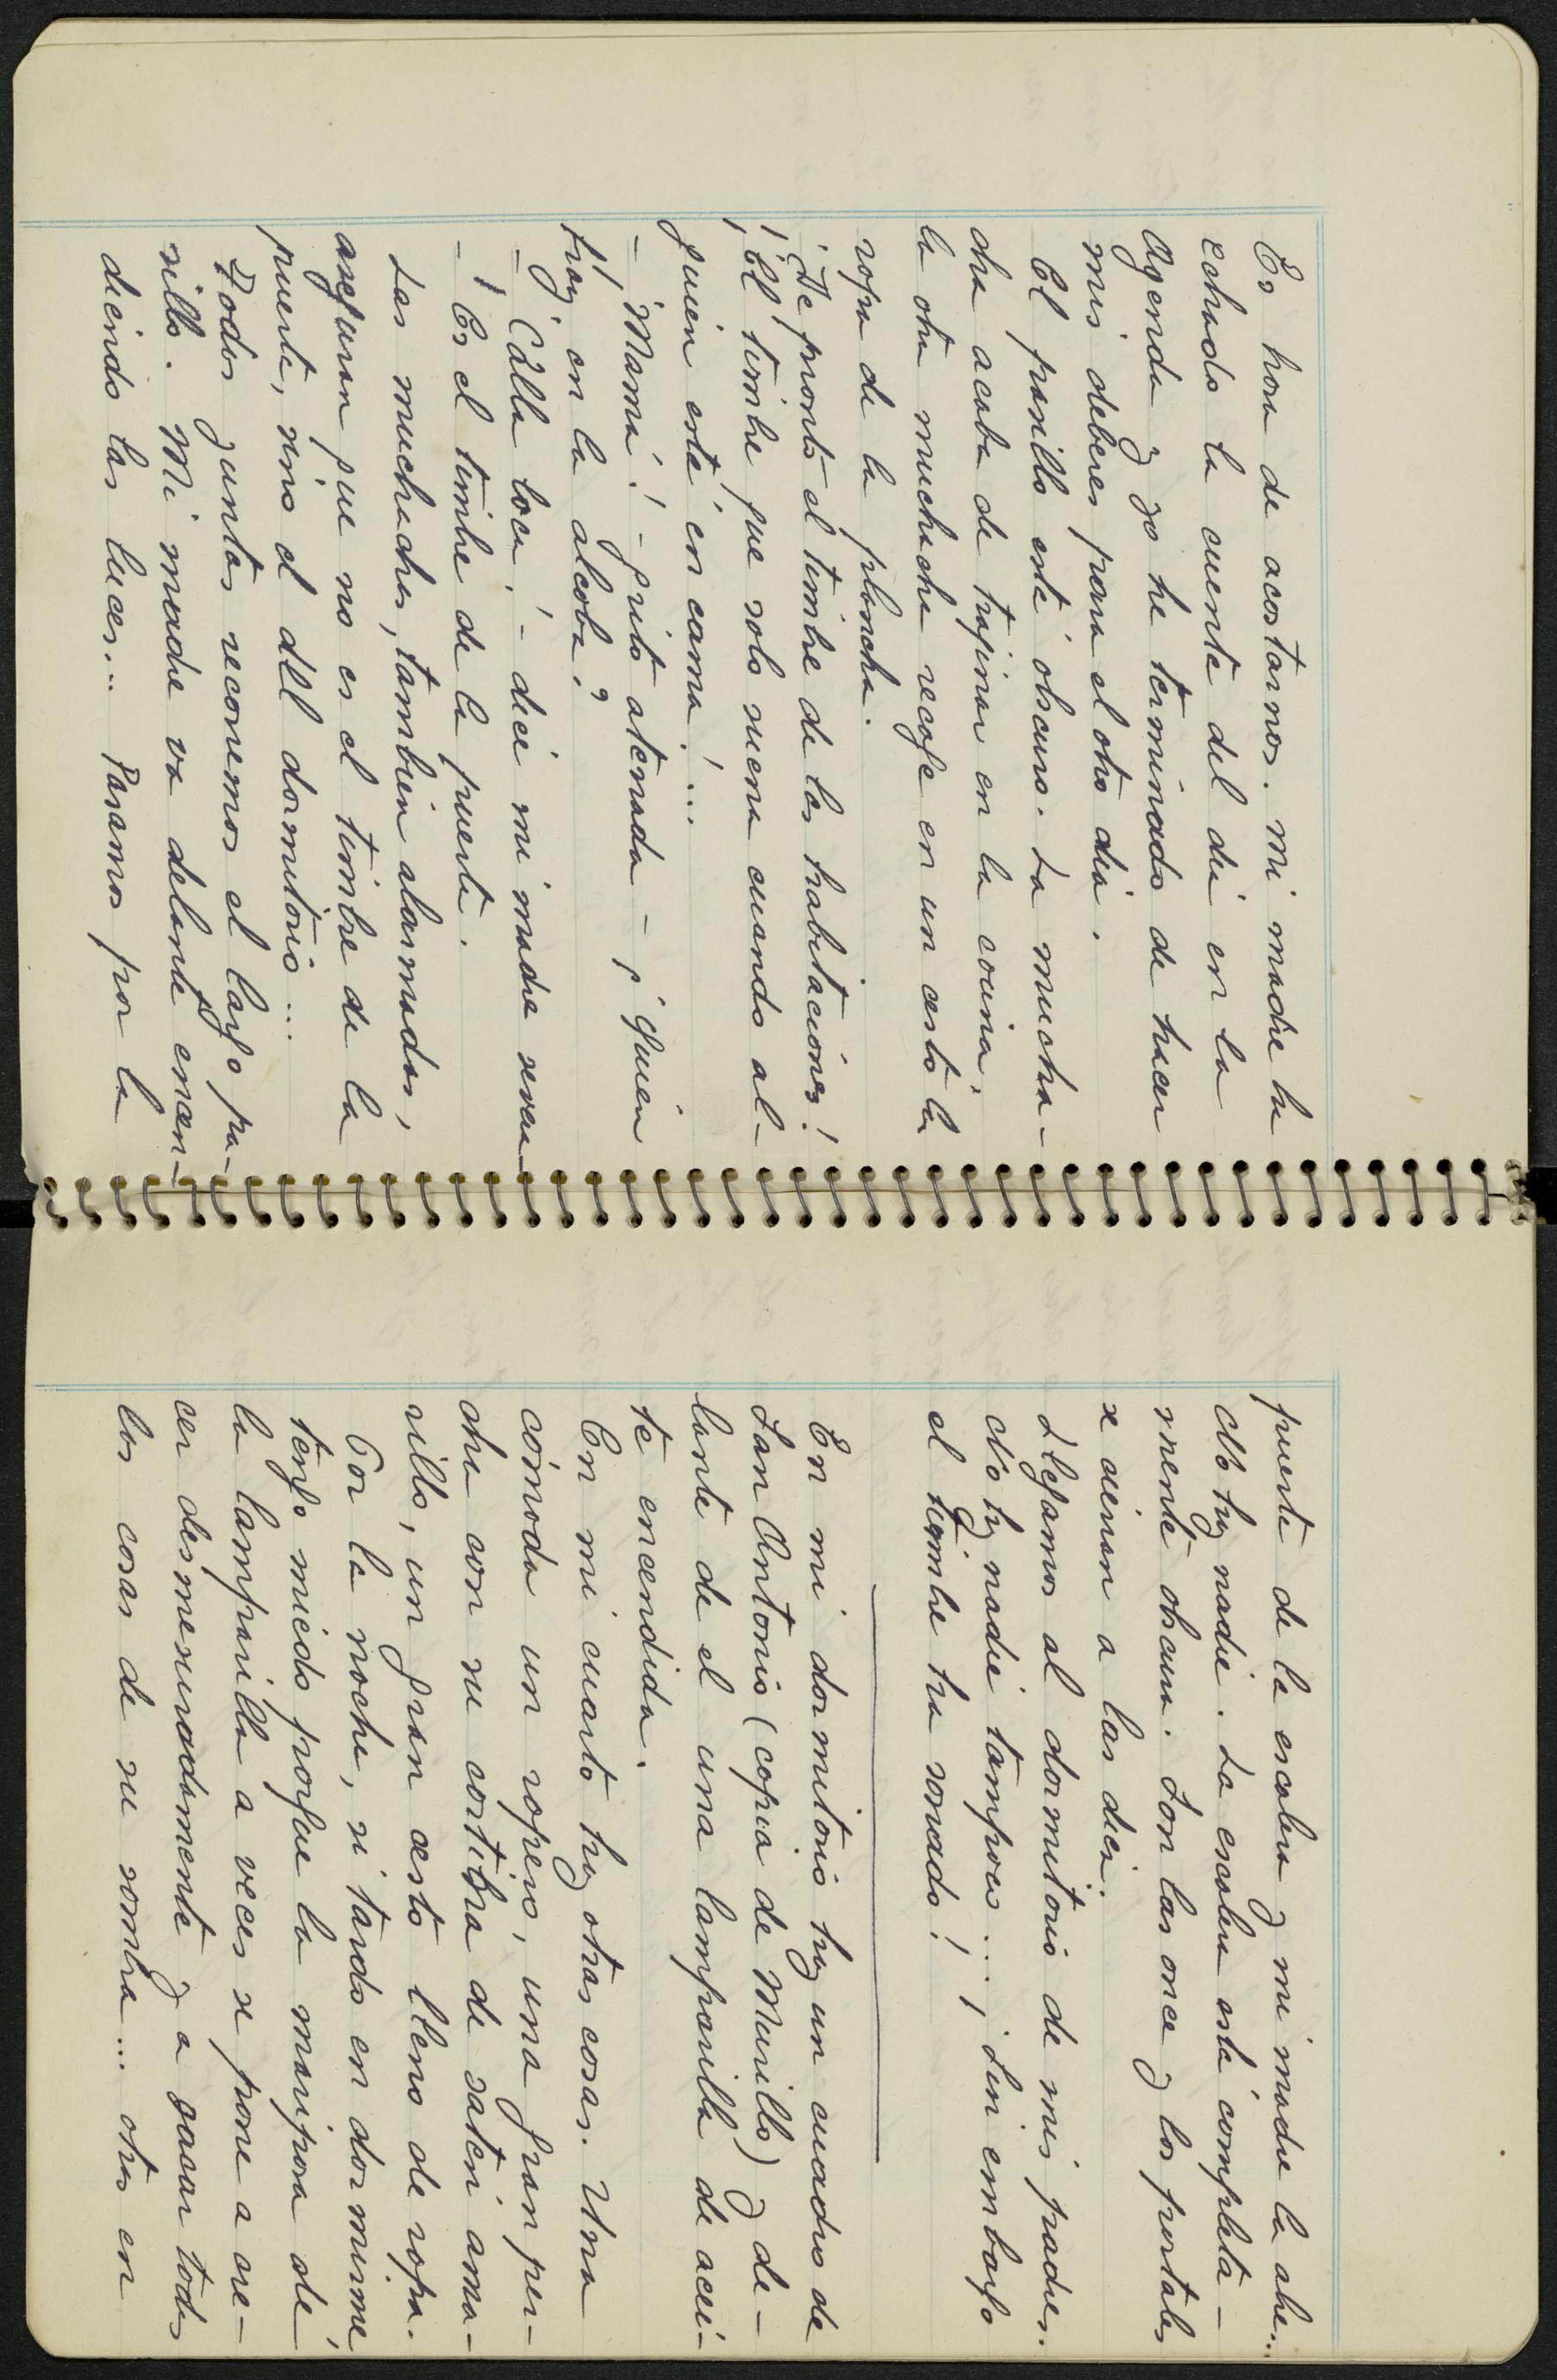 Es hora de acostarnos. Mi madre ha
echado la cuenta del dia en la
Agenda y yo he terminado de hacer
mis deberes para el otro día.
El pasillo está obscuro. La mucha-
cha acaba de trajinar en la cocina,
la otra muchacha recoge en un cesto la
ropa de la plancha.
¡De pronto el timbre de las habitaciones!
¡El timbre que solo suena cuando al-
guien está en cama!...
- ¡Mamá! - grito aterrada - ¿Quien
hay en la alcoba?
- ¡Calla loca! - dice mi madre severa
- Es el timbre de la puerta.
Las muchachas, tambien alarmadas,
aseguran que no es el timbre de la
puerta, sino el del dormitorio...
Todos juntos recorremos el largo pa-
sillo. Mi madre va delante encen-
diendo las luces... Pasamos por la
puerta de la escalera y mi madre la abre...
No hay nadie. La escalera está completa-
mente obscura. Son las once y los portales
se cierran a las diez.
Llegamos al dormitorio de mis padres.
No hay nadie tampoco... ¡Sin embargo
el timbre ha sonado!
En mi dormitorio hay un cuadro de
San Antonio (copia de Murillo) y de-
lante de el una lamparilla de acei-
te encendida.
En mi cuarto hay otras cosas. Una
cómoda un ropero, una gran per-
cha con su cortina de satén ama-
rillo, un gran cesto lleno de ropa.
Por la noche, si tardo en dormirme,
tengo miedo porque la mariposa de
la lamparilla a veces se pone a cre-
cer desmesuradamente y a sacar todas
las cosas de su sombra... otras en